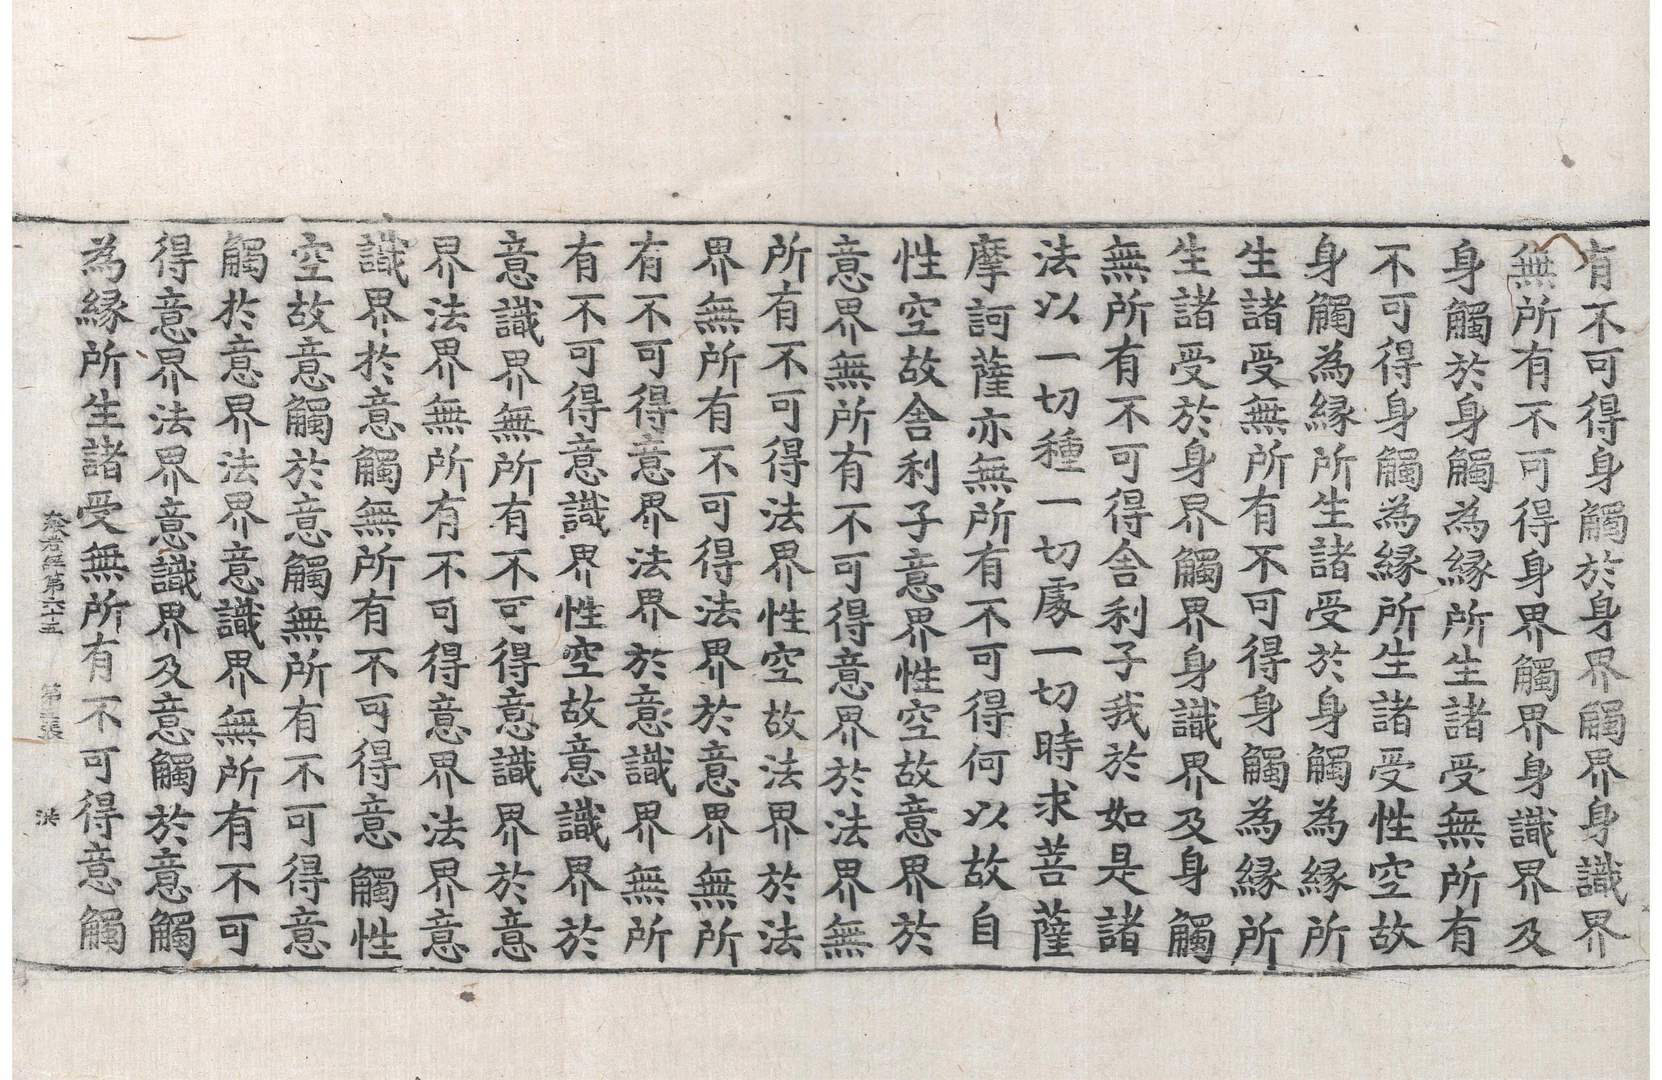 有不可得身觸於身界觸界身識界
無所有不可得身界觸界身識界及
身觸於身觸為縁所生諸受無所有
不可得身觸為縁所生諸受性空故
身觸為縁所生諸受於身觸為縁所
生諸受無所有不可得身觸為縁所
生諸受於身界觸界身識界及身觸
無所有不可得舍利子我於如是諸
法以一切種一切處一切時求菩薩
摩訶薩亦無所有不可得何以故自
性空故舍利子意界性空故意界於
意界無所有不可得意界於法界無
所有不可得法界性空故法界於法
界無所有不可得法界於意界無所
有不可得意界法界於意識界無所
有不可得意識界性空故意識界於
意識界無所有不可得意識界於意
界法界無所有不可得意界法界意
識界於意觸無所有不可得意觸性
空故意觸於意觸無所有不可得意
觸於意界法界意識界無所有不可
得意界法界意識界及意觸於意觸
為縁所生諸受無所有不可得意觸
般若經第六十五 第張 洪